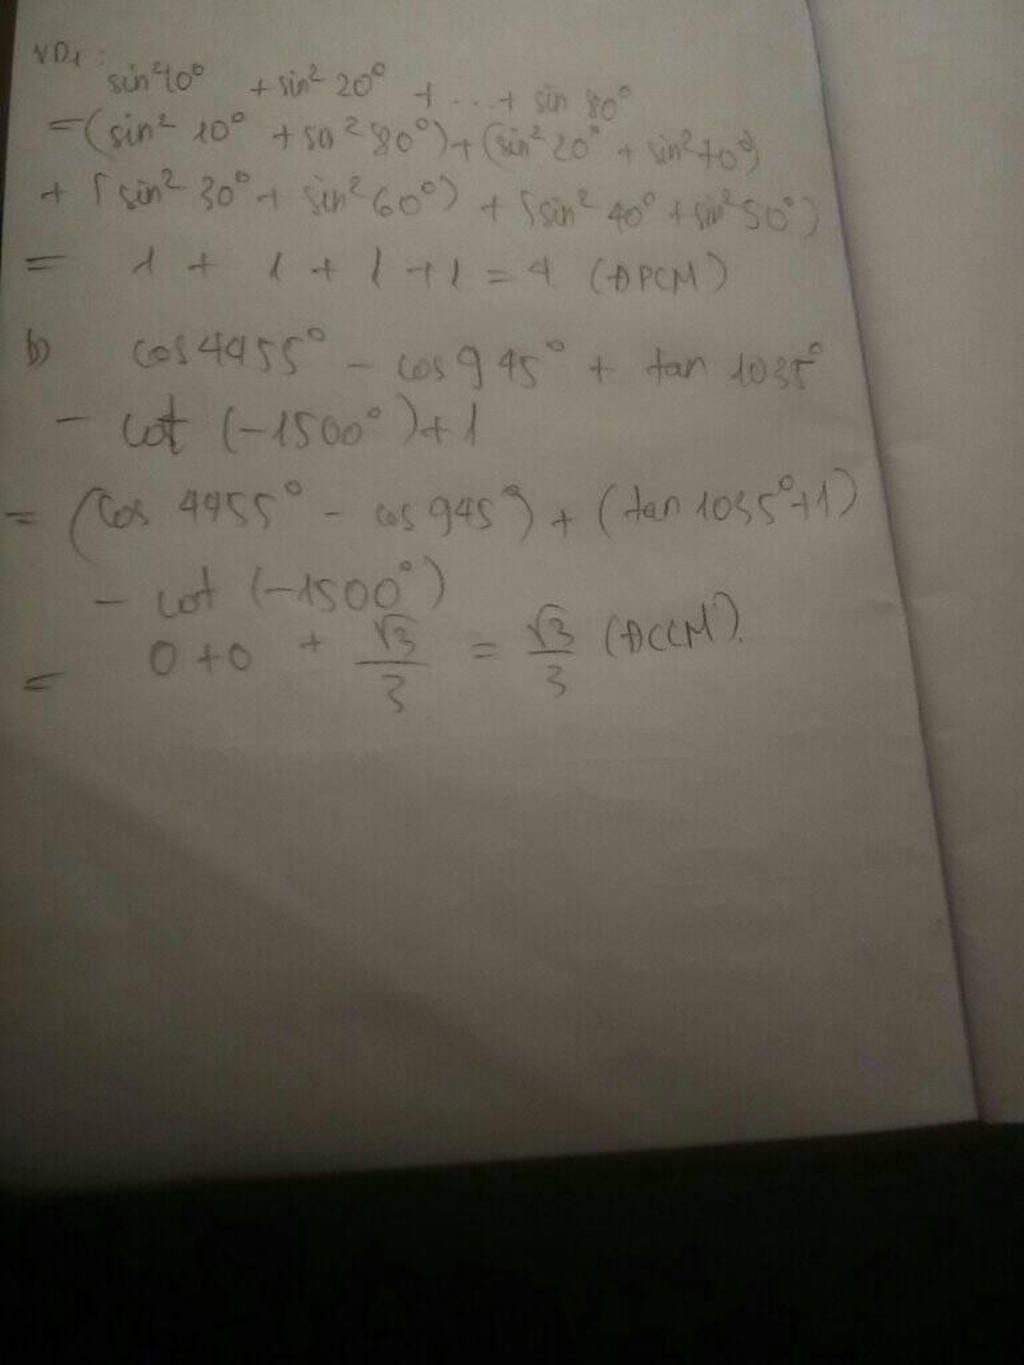 VD1:
sin²10° + sin² 20° + ... + sin 80°
= (sin² 10° + sin² 80°) + (sin² 20° + sin² 70°)
+ (sin² 30° + sin² 60°) + (sin² 40° + sin² 50°)
= 1 + 1 + 1 + 1 = 4 (ĐPCM)
b) cos 4455° - cos 945° + tan 1035°
- cot (-1500°) + 1
= (cos 4455° - cos 945°) + (tan 1035° + 1)
- cot (-1500°)
= 0 + 0 + √3/3 = √3/3 (ĐCCM).